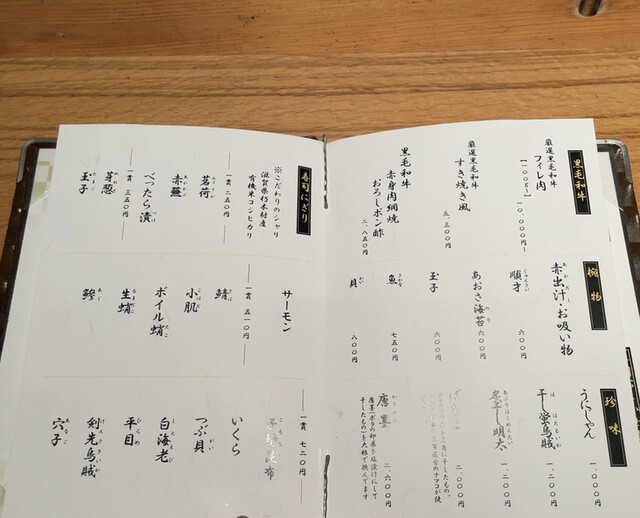 黒毛和牛
厳選黒毛和牛
フィレ肉
【100g~】
一〇、〇〇〇円~
厳選黒毛和牛
すき焼き風
五、三〇〇円
黒毛和牛
赤身肉網焼
おろしポン酢
二、八五〇円
椀物
赤出汁・お吸い物
順才
六〇〇円
あおさ海苔
六〇〇円
玉子
六〇〇円
魚
七五〇円
貝
八〇〇円
珍味
うにしゃん
一、〇〇〇円
干し蛍烏賊
一、二〇〇円
一、二〇〇円
二、〇〇〇円
唐墨
唐墨(ボラの卵巣を塩漬けにして
干したもの)を大根で挟んでます
二、六〇〇円
寿司にぎり
※こだわりのシャリ
滋賀県朽木村産
有機米コシヒカリ
一貫 二五〇円
茗荷
赤蕪
べったら漬
一貫 三五〇円
芽葱
玉子
サーモン
一貫 五一〇円
鯖
小肌
ボイル蛸
生蛸
鯵
一貫 七二〇円
いくら
つぶ貝
白海老
平目
剣先烏賊
穴子